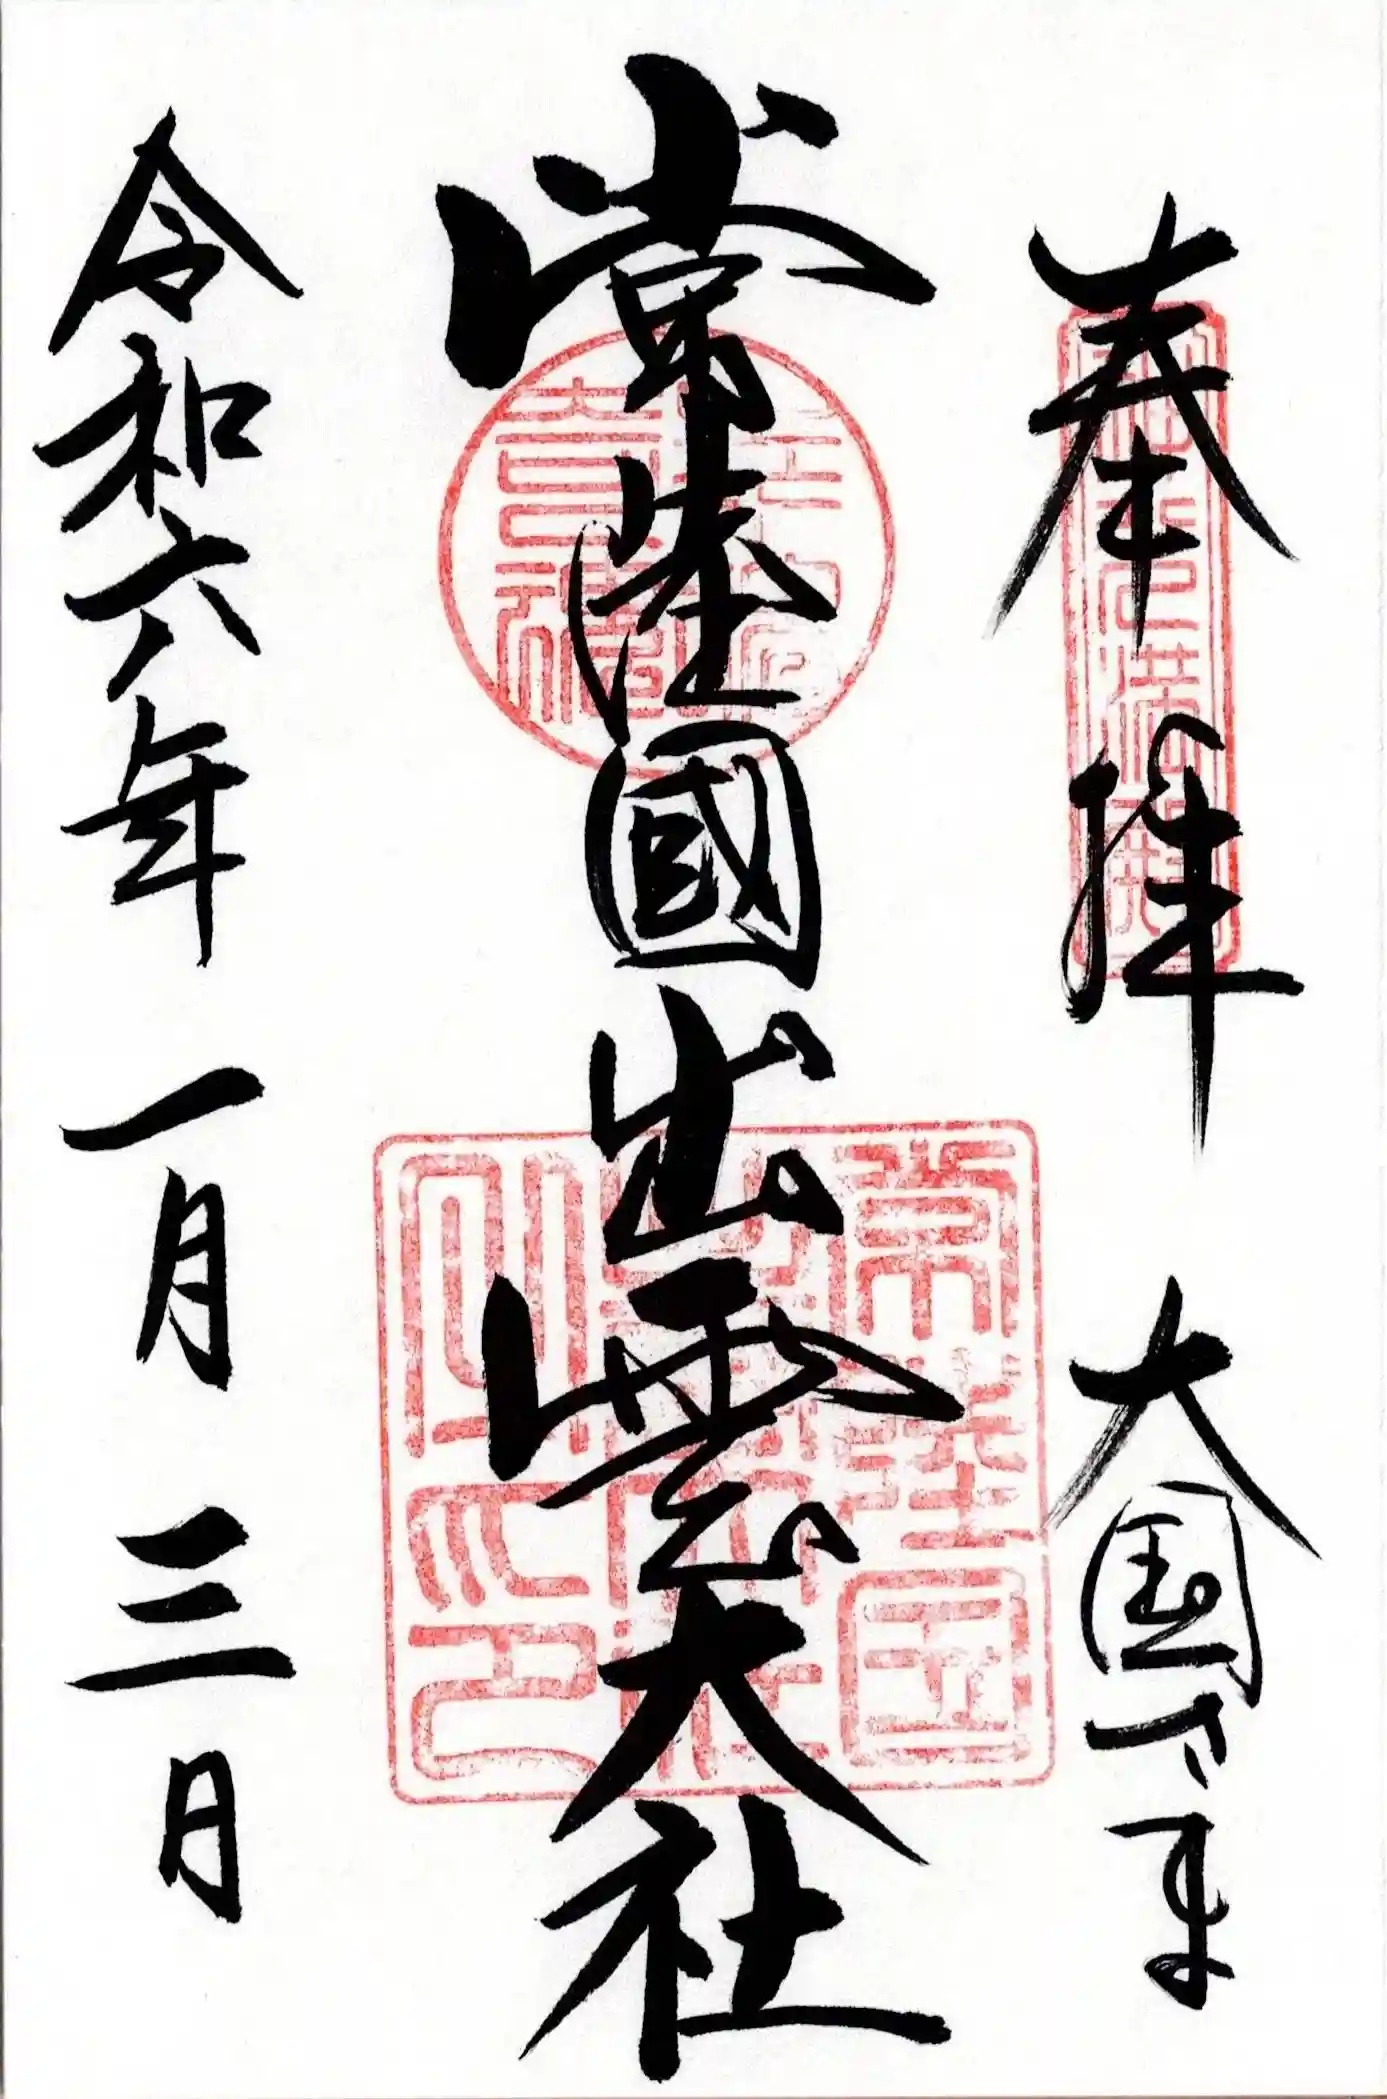 奉拝 大国さま
常陸國出雲大社
令和六年一月三日
常陸国